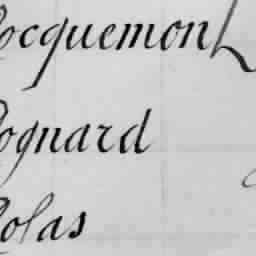 Rocquemont
Rognard
Rolas